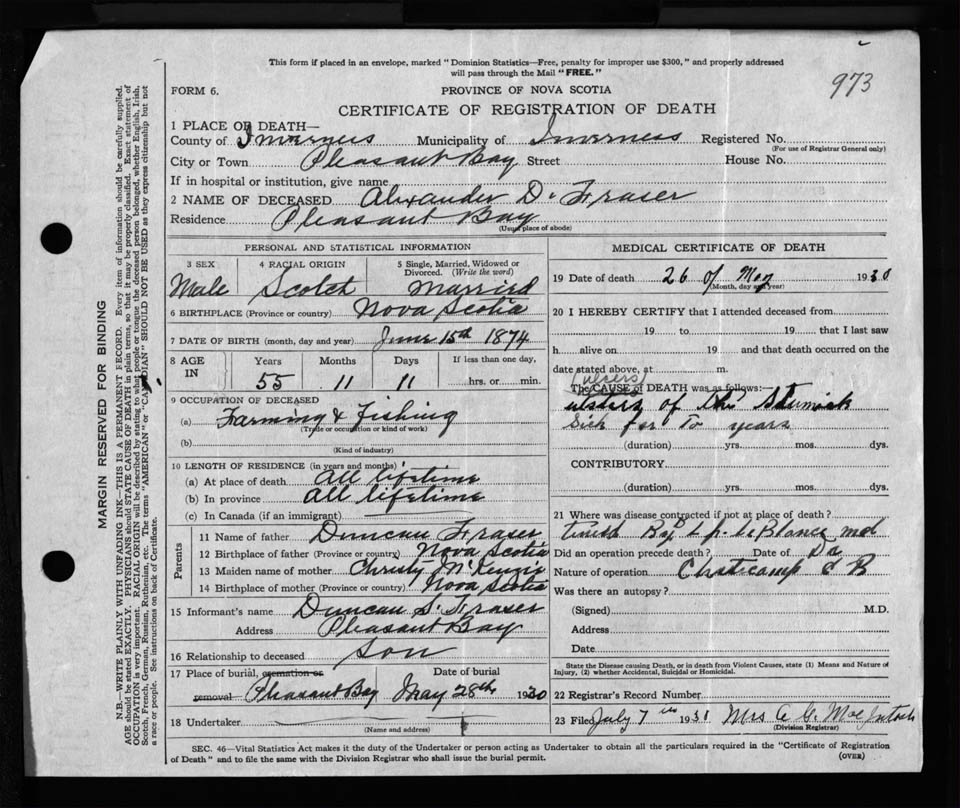 973
This form if placed in an envelope, marked "Dominion Statistics—Free, penalty for improper use $300," and properly addressed
will pass through the Mail "FREE."
FORM 6.
PROVINCE OF NOVA SCOTIA
CERTIFICATE OF REGISTRATION OF DEATH
1 PLACE OF DEATH—
County of Inverness Municipality of Inverness Registered No.
(For use of Registrar General only)
City or Town Pleasant Bay Street House No.
If in hospital or institution, give name
2 NAME OF DECEASED Alexander D. Fraser
Residence Pleasant Bay
(Usual place of abode)
PERSONAL AND STATISTICAL INFORMATION
3 SEX 4 RACIAL ORIGIN 5 Single, Married, Widowed or
Divorced. (Write the word)
Male Scotch Married
6 BIRTHPLACE (Province or country) Nova Scotia
7 DATE OF BIRTH (month, day and year) June 15th 1874
8 AGE IN Years Months Days If less than one day,
55 11 11 hrs. or min.
9 OCCUPATION OF DECEASED
(a) Farming & fishing
(Type or occupation or kind of work)
(b)
(Kind of industry)
10 LENGTH OF RESIDENCE (in years and months)
(a) At place of death All lifetime
(b) In province All lifetime
(c) In Canada (if an immigrant)
Parents
11 Name of father Duncan Fraser
12 Birthplace of father (Province or country) Nova Scotia
13 Maiden name of mother Christy McKenzie
14 Birthplace of mother (Province or country) Nova Scotia
15 Informant's name Duncan S. Fraser
Address Pleasant Bay
16 Relationship to deceased Son
17 Place of burial, cremation or Date of burial
removal Pleasant Bay May 28th 1930
18 Undertaker
(Name and address)
MEDICAL CERTIFICATE OF DEATH
19 Date of death 26 of May 1930
(Month, day and year)
20 I HEREBY CERTIFY that I attended deceased from
19 to 19 that I last saw
h alive on 19 and that death occurred on the
date stated above, at m.
The CAUSE of DEATH was as follows:—
ulsers
of the Stumick
Sick for To years
(duration) yrs. mos. dys.
CONTRIBUTORY
(duration) yrs. mos. dys.
21 Where was disease contracted if not at place of death?
By L. P. LeBlance md
Did an operation precede death? Date of Dr
Nature of operation Chaticamp C B
Was there an autopsy?
(Signed) M.D.
Address
Date
State the Disease causing Death, or in death from Violent Causes, state (1) Means and Nature of
Injury, (2) whether Accidental, Suicidal or Homicidal.
22 Registrar's Record Number
23 Filed July 7th 1931 Mrs A C. MacIntosh
(Division Registrar)
SEC. 46—Vital Statistics Act makes it the duty of the Undertaker or person acting as Undertaker to obtain all the particulars required in the "Certificate of Registration
of Death" and to file the same with the Division Registrar who shall issue the burial permit.
(OVER)
MARGIN RESERVED FOR BINDING
N.B.—WRITE PLAINLY WITH UNFADING INK—THIS IS A PERMANENT RECORD. Every item of information should be carefully supplied.
AGE should be stated EXACTLY. PHYSICIANS should STATE CAUSE OF DEATH in plain terms, so that it may be properly classified. Exact statement of
OCCUPATION is very important. RACIAL ORIGIN will be described by stating to what people or tongue the deceased person belonged, whether English, Irish,
Scotch, French, German, Russian, Ruthenian, etc. The terms "AMERICAN" or "CANADIAN" SHOULD NOT BE USED as they express citizenship but not
a race or people. See instructions on back of Certificate.